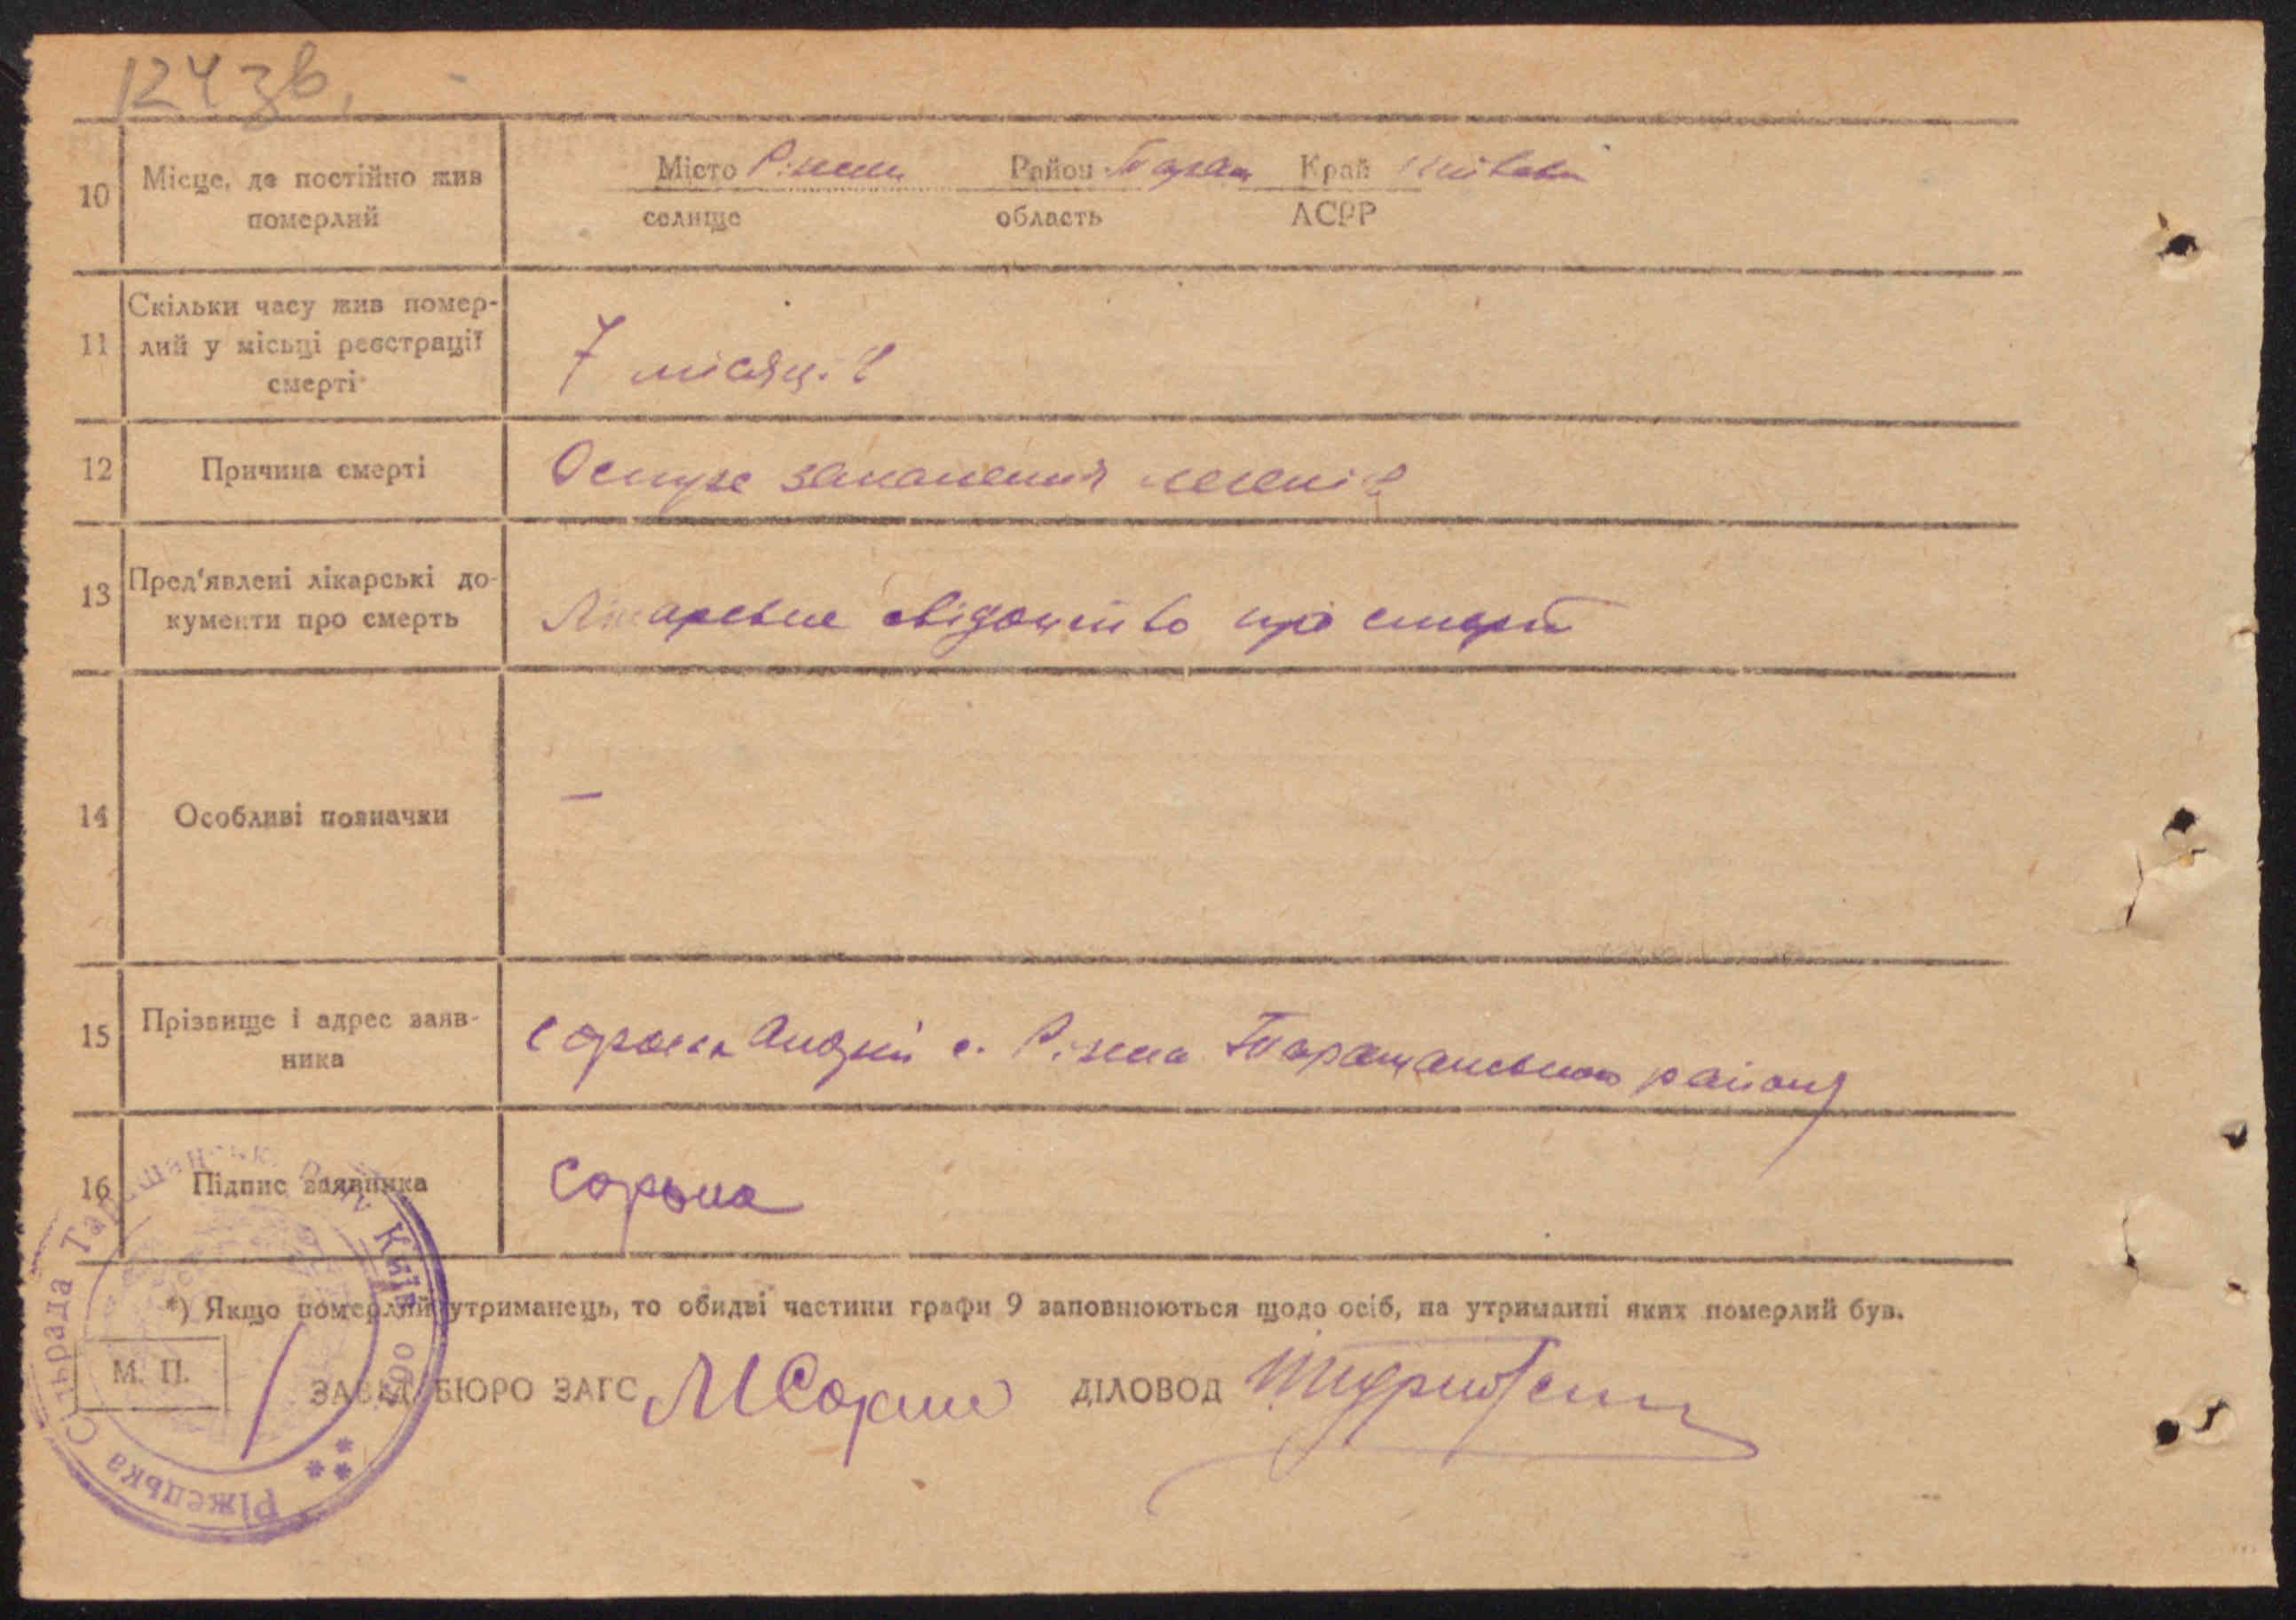 124 зв.
10
Місце, де постійно жив
померлий
Місто Ріжки Район Таращ Край Київськ
селище область АСРР
11
Скільки часу жив помер-
лий у місьці реєстрації
смерті
7 місяців
12
Причина смерті
Остре запалення легенів
13
Пред'явлені лікарські до-
кументи про смерть
Лікарське свідоцтво про смерть
14
Особливі позначки
—
15
Прізвище і адрес заяв-
ника
Сорока Андрій с. Ріжки Таращанського району
16
Підпис заявника
Сорока
*) Якщо померлий утриманець, то обидві частини графи 9 заповнюються щодо осіб, на утриманні яких померлий був.
М. П.
ЗАВІД. БЮРО ЗАГС ДІЛОВОД
Ріжецька Сільрада Таращанськ. Київ